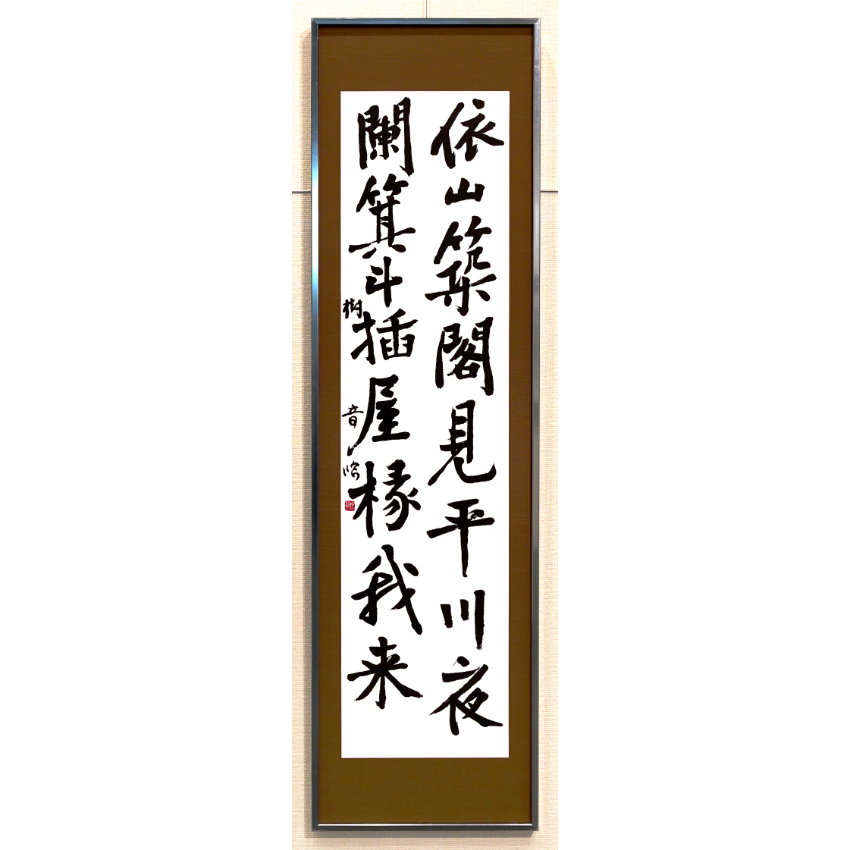 依山築閣見平川夜
闌箕斗插屋椽我来
樹音